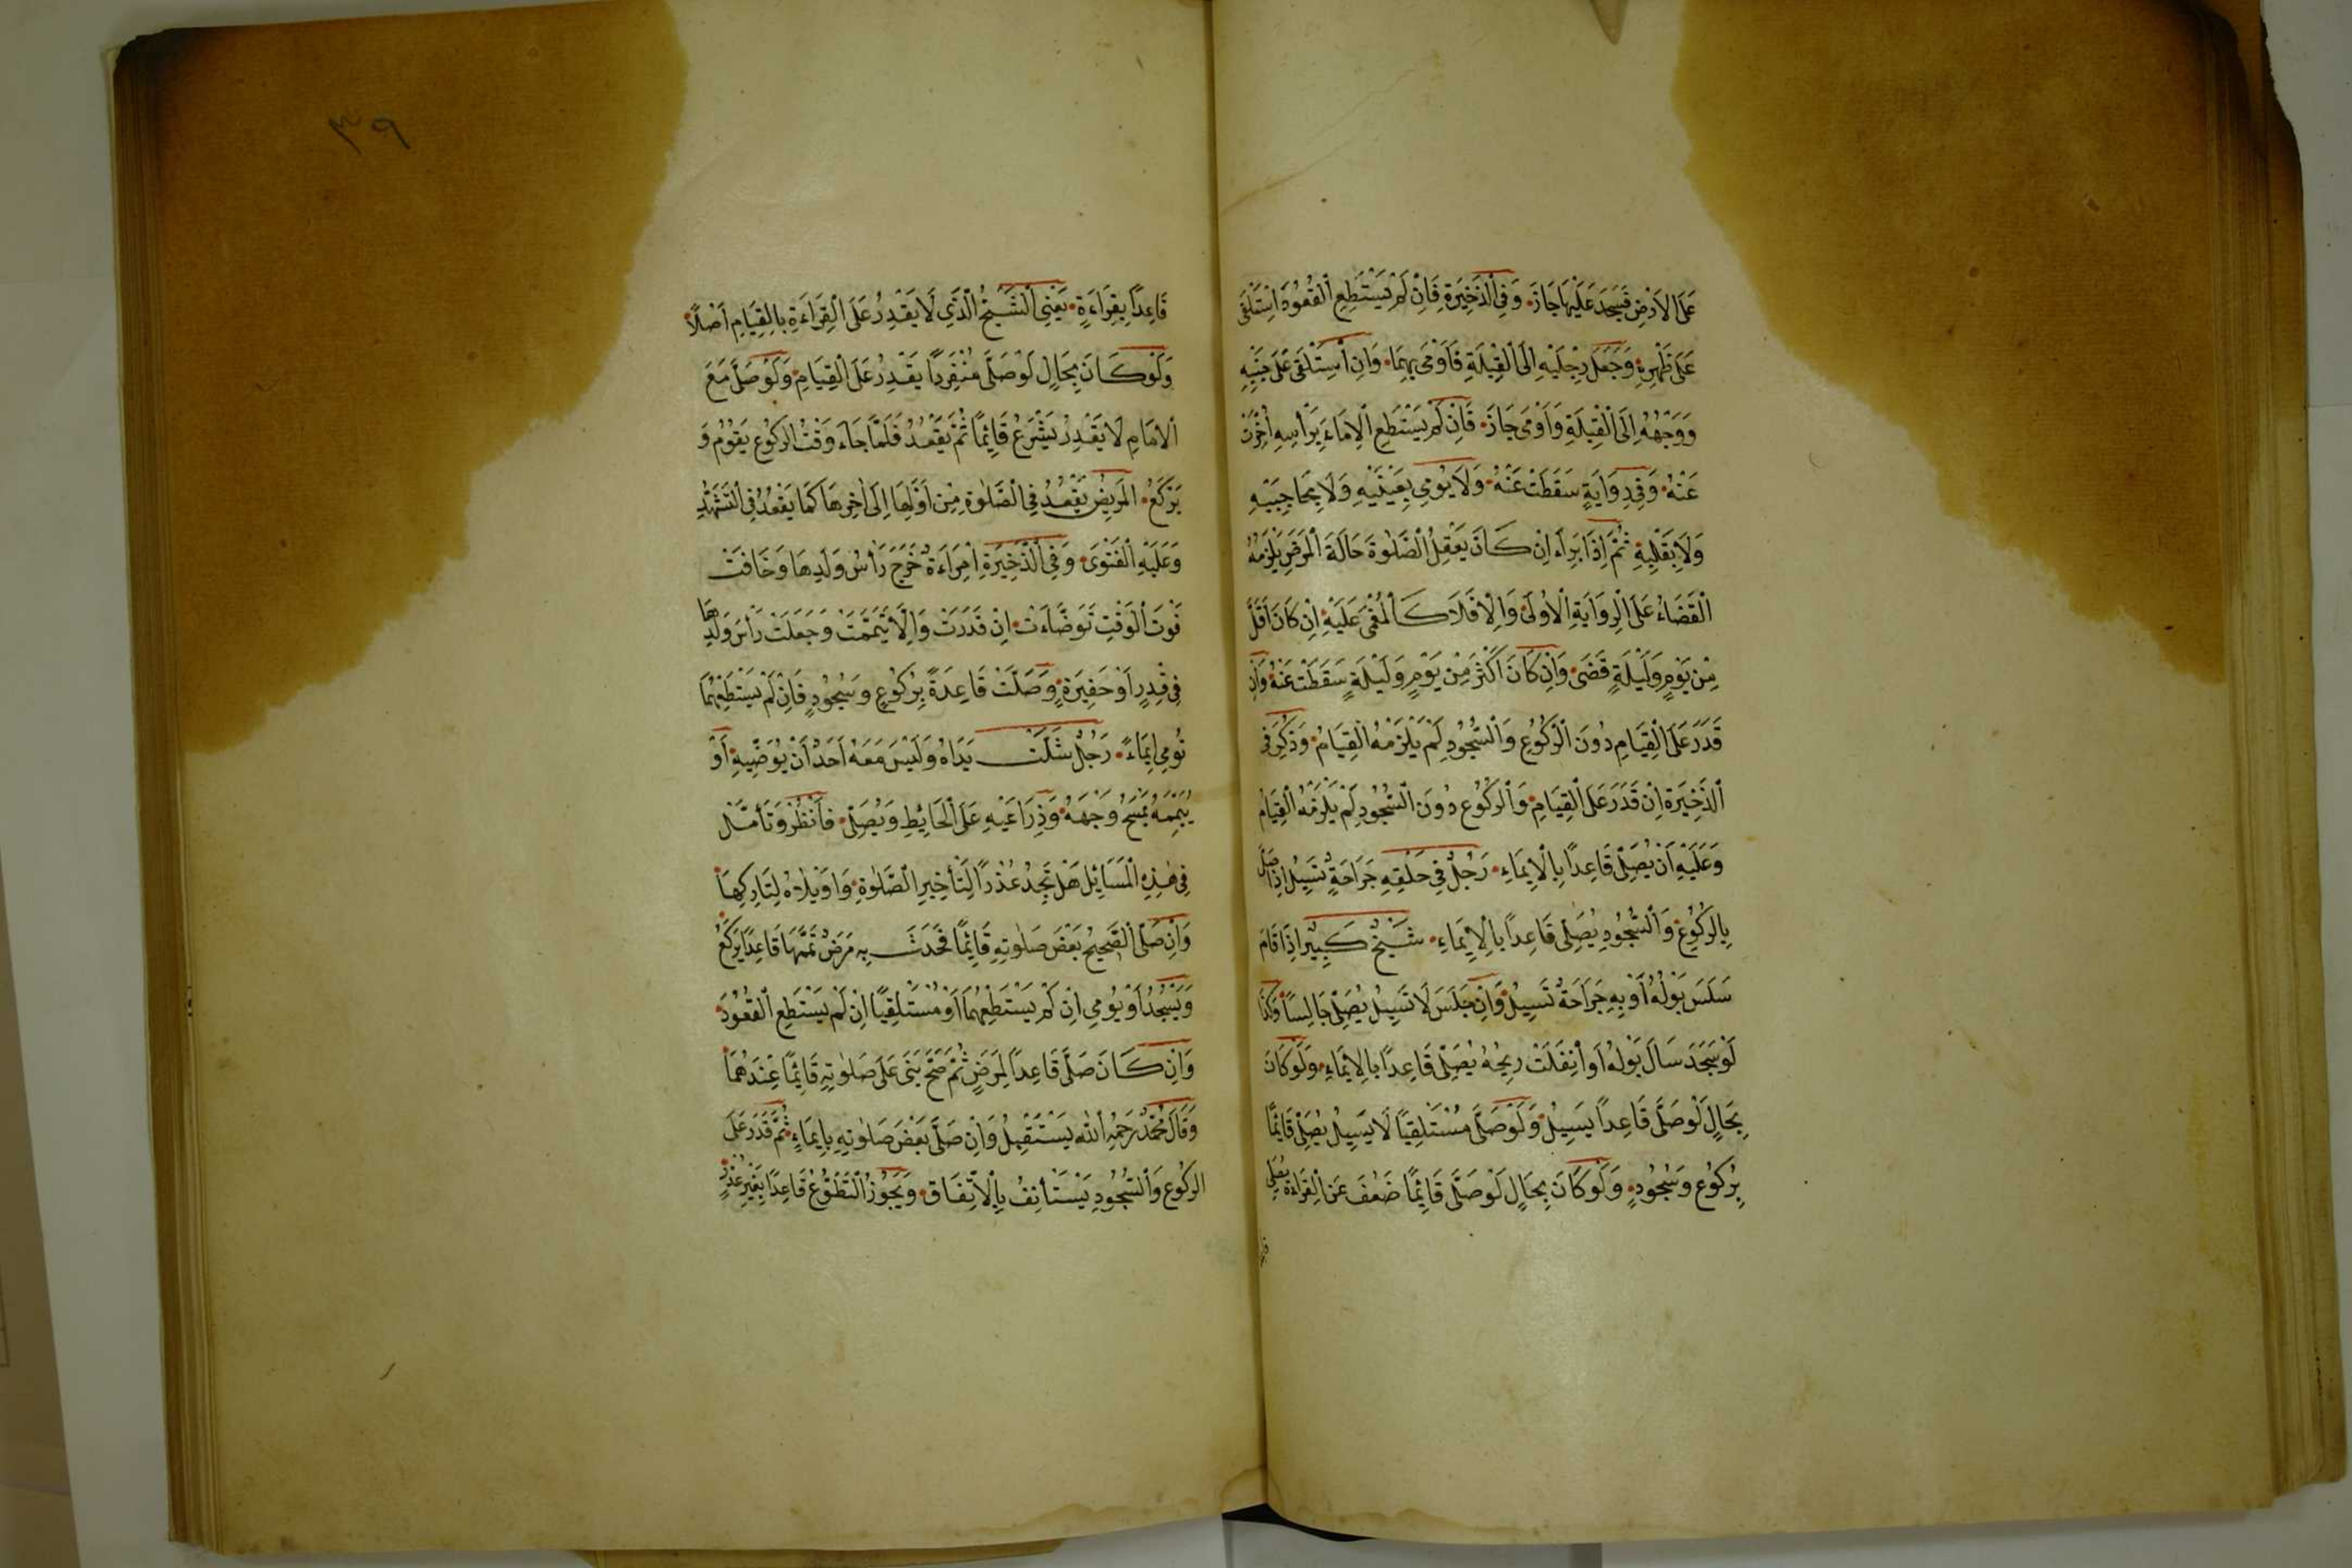 عَلَى الْاَرْضِ فَسَجَدَ عَلَيْهَا جَازَ وَفِي الذَّخِيرَةِ فَاِنْ لَمْ يَسْتَطِعِ الْقُعُودَ اسْتَلْقَى
عَلَى ظَهْرِهِ وَجَعَلَ رِجْلَيْهِ اِلَى الْقِبْلَةِ فَاَوْمَى بِهِمَا وَاِنِ اسْتَلْقَى عَلَى جَنْبِهِ
وَوَجْهُهُ اِلَى الْقِبْلَةِ وَاَوْمَى جَازَ فَاِنْ لَمْ يَسْتَطِعِ الْاِمَاءَ بِرَأْسِهِ اُخِّرَتْ
عَنْهُ وَفِي رِوَايَةٍ سَقَطَتْ عَنْهُ وَلَا يُومِي بِعَيْنَيْهِ وَلَا بِحَاجِبَيْهِ
وَلَا بِقَلْبِهِ ثُمَّ اِذَا بَرِأَ اِنْ كَانَ يَعْقِلُ الصَّلٰوةَ حَالَةَ الْمَرَضِ يَلْزَمُهُ
الْقَضَاءُ عَلَى الرِّوَايَةِ الْاُولَى وَاِلَّا فَلَا كَالْمُغْمَى عَلَيْهِ اِنْ كَانَ اَقَلَّ
مِنْ يَوْمٍ وَلَيْلَةٍ قَضَى وَاِنْ كَانَ اَكْثَرَ مِنْ يَوْمٍ وَلَيْلَةٍ سَقَطَتْ عَنْهُ وَاِنْ
قَدَرَ عَلَى الْقِيَامِ دُونَ الرُّكُوعِ وَالسُّجُودِ لَمْ يَلْزَمْهُ الْقِيَامُ وَذُكِرَ فِي
الذَّخِيرَةِ اِنْ قَدَرَ عَلَى الْقِيَامِ وَالرُّكُوعِ دُونَ السُّجُودِ لَمْ يَلْزَمْهُ الْقِيَامُ
وَعَلَيْهِ اَنْ يُصَلِّيَ قَاعِدًا بِالْاِيمَاءِ رَجُلٌ فِي حَلْقِهِ جَرَاحَةٌ تَسِيلُ اِذَا صَلَّى
بِالرُّكُوعِ وَالسُّجُودِ يُصَلِّي قَاعِدًا بِالْاِيمَاءِ شَيْخٌ كَبِيرٌ اِذَا قَامَ
سَلَسَ بَوْلُهُ اَوْ بِهِ جَرَاحَةٌ تَسِيلُ وَاِنْ جَلَسَ لَا تَسِيلُ يُصَلِّي جَالِسًا وَكَذَا
لَوْ سَجَدَ سَالَ بَوْلُهُ اَوِ انْفَلَتَ رِيحُهُ يُصَلِّي قَاعِدًا بِالْاِيمَاءِ وَلَوْ كَانَ
بِحَالٍ لَوْ صَلَّى قَاعِدًا يَسِيلُ وَلَوْ صَلَّى مُسْتَلْقِيًا لَا يَسِيلُ يُصَلِّي قَائِمًا
بِرُكُوعٍ وَسُجُودٍ وَلَوْ كَانَ بِحَالٍ لَوْ صَلَّى قَائِمًا ضَعُفَ عَنِ الْقِرَاءَةِ يُصَلِّي
٣٩
قَاعِدًا بِقِرَاءَةٍ يَعْنِي الشَّيْخُ الَّذِي لَا يَقْدِرُ عَلَى الْقِرَاءَةِ بِالْقِيَامِ اَصْلًا
وَلَوْ كَانَ بِحَالٍ لَوْ صَلَّى مُنْفَرِدًا يَقْدِرُ عَلَى الْقِيَامِ وَلَوْ صَلَّى مَعَ
الْاِمَامِ لَا يَقْدِرُ يَشْرَعُ قَائِمًا ثُمَّ يَقْعُدُ فَلَمَّا جَاءَ وَقْتُ الرُّكُوعِ يَقُومُ وَ
يَرْكَعُ الْمَرِيضُ يَقْعُدُ فِي الصَّلٰوةِ مِنْ اَوَّلِهَا اِلَى اٰخِرِهَا كَمَا يَقْعُدُ فِي التَّشَهُّدِ
وَعَلَيْهِ الْفَتْوَى وَفِي الذَّخِيرَةِ اِمْرَاَةٌ خَرَجَ رَأْسُ وَلَدِهَا وَخَافَتْ
فَوْتَ الْوَقْتِ تَوَضَّاَتْ اِنْ قَدَرَتْ وَاِلَّا تَيَمَّمَتْ وَجَعَلَتْ رَأْسَ وَلَدِهَا
فِي قِدْرٍ اَوْ حَفِيرَةٍ وَصَلَّتْ قَاعِدَةً بِرُكُوعٍ وَسُجُودٍ فَاِنْ لَمْ يَسْتَطِعْهُمَا
تُومِي اِيمَاءً رَجُلٌ شَلَّتْ يَدَاهُ وَلَيْسَ مَعَهُ اَحَدٌ اَنْ يُوَضِّيَهِ اَوْ
يُيَمِّمَهُ يَمْسَحُ وَجْهَهُ وَذِرَاعَيْهِ عَلَى الْحَائِطِ وَيُصَلِّي فَانْظُرْ وَتَأَمَّلْ
فِي هٰذِهِ الْمَسَائِلِ هَلْ تَجِدُ عُذْرًا لِتَأْخِيرِ الصَّلٰوةِ وَاوَيْلَاهُ لِتَارِكِهَا
وَاِنْ صَلَّى الصَّحِيحُ بَعْضَ صَلٰوتِهِ قَائِمًا فَحَدَثَ بِهِ مَرَضٌ تَمَّهَا قَاعِدًا يَرْكَعُ
وَيَسْجُدُ اَوْ يُومِي اِنْ لَمْ يَسْتَطِعْهُمَا اَوْ مُسْتَلْقِيًا اِنْ لَمْ يَسْتَطِعِ الْقُعُودَ
وَاِنْ كَانَ صَلَّى قَاعِدًا لِمَرَضٍ ثُمَّ صَحَّ بَنَى عَلَى صَلٰوتِهِ قَائِمًا عِنْدَهُمَا
وَقَالَ مُحَمَّدٌ رَحِمَهُ اللّٰه يَسْتَقْبِلُ وَاِنْ صَلَّى بَعْضَ صَلٰوتِهِ بِاِيمَاءٍ ثُمَّ قَدَرَ عَلَى
الرُّكُوعِ وَالسُّجُودِ يَسْتَأْنِفُ بِالْاِتِّفَاقِ وَيَجُوزُ التَّطَوُّعُ قَاعِدًا بِغَيْرِ عُذْرٍ